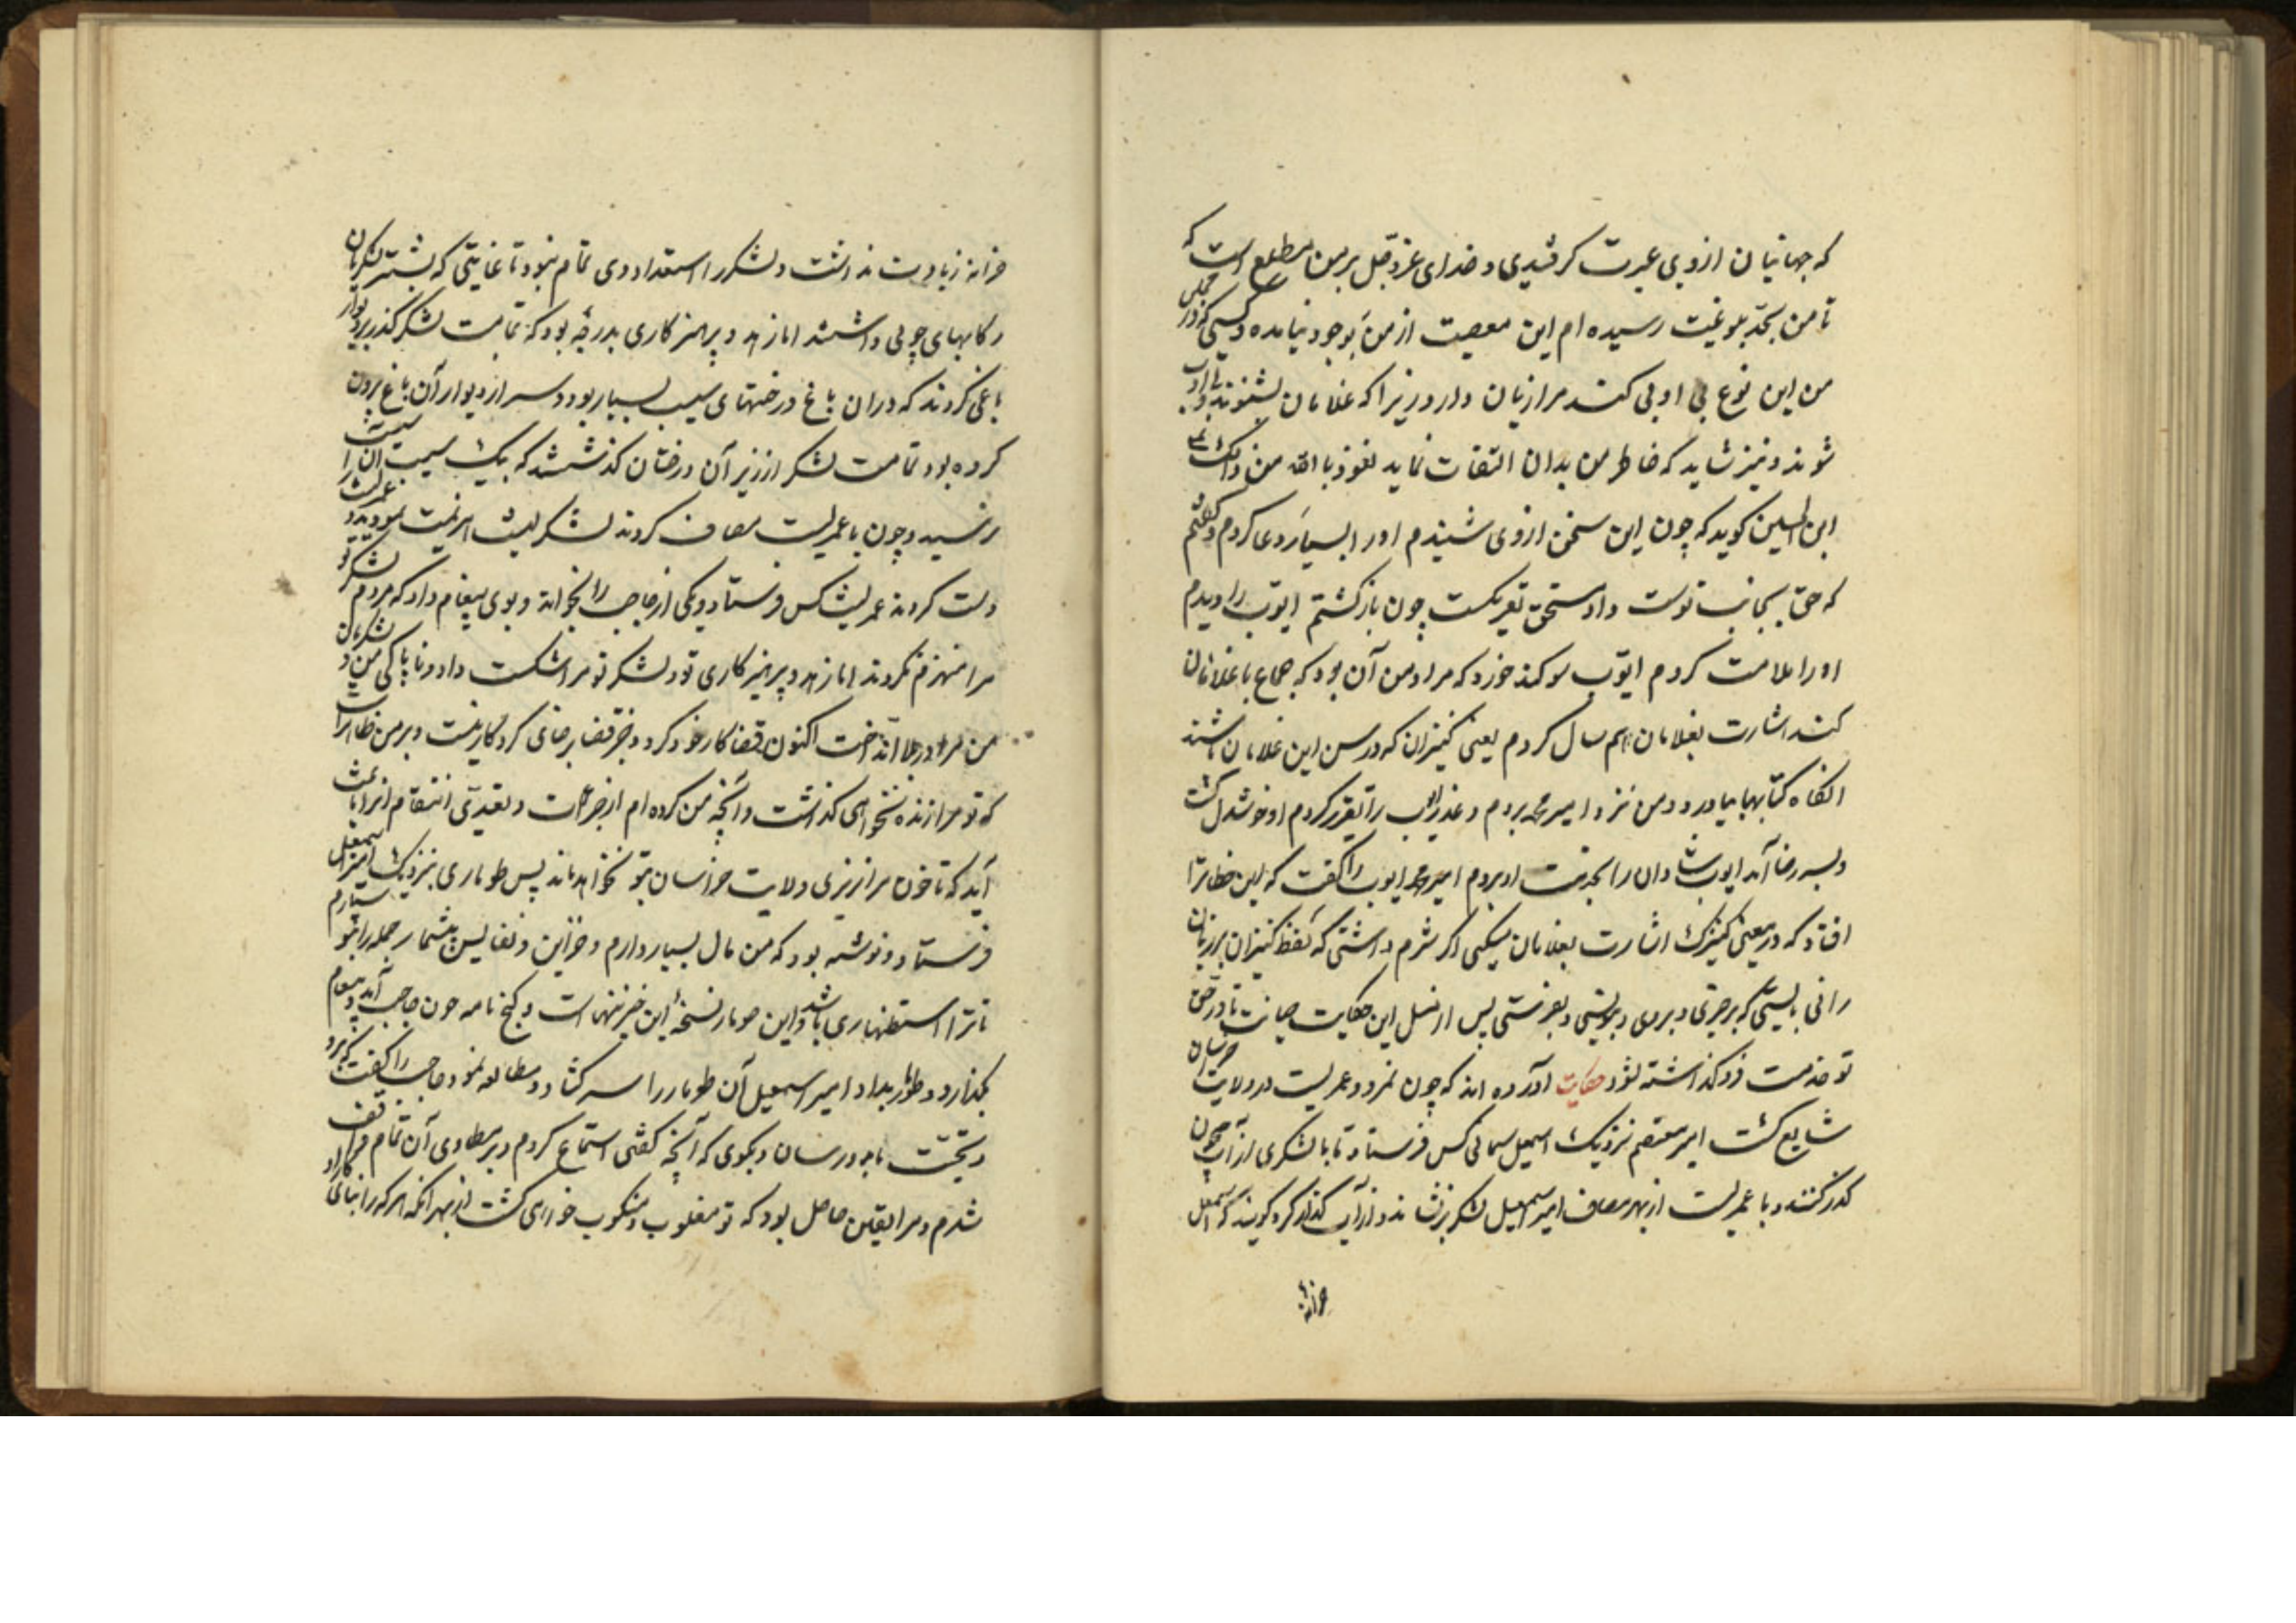 که جهانیان ازوی عبرت گرفتندی و خدای عز و جل بر من مطلع است که
تا من بحد بلوغیت رسیده ام این معصیت از من بوجود نیامده و کسی که در مجلس
من این نوع بی ادبی کند مرا زیان دارد زیرا که غلامان بشنوند و بی ادب
شوند و نیز شاید که خاطر من بدان التفات نماید نعوذ بالله من ذلک
ابن الحسین کوید که چون این سخن ازوی شنیدم اورا بسیار دعا کردم و گفتم
که حق بجانب تو است و او مستحق تعریکست چون بازگشتم ایوب را دیدم
اورا ملامت کردم ایوب سوکند خورد که مراد من آن بود که جماع با غلامان
کند اشارت بغلامان هم سال کردم یعنی کنیزان که در سن این غلامان باشند
آنگاه کتابها بیاورد و من نزد امیر محمد بردم و عذر ایوب را تقریر کردم او خوشدل گشت
و بسر رضا آمد ایوب شادان را بخدمت او بردم امیر محمد ایوب را گفت که این خطا ترا
افتاد که در معنی کنیزک اشارت بغلامان میکنی اگر شرم داشتی که لفظ کنیزان بر زبان
رانی بایستی که
تو خدمت فرو گذاشته نشود حکایت آورده اند که چون تمرد عمر لیث در ولایت خراسان
شایع گشت امیر معتصم نزدیک اسمعیل سمانی کس فرستاد تا با لشکری از آب جیحون
گذر کنند و با عمر لیث از بهر مصاف امیر اسمعیل لشکر بر نشاند و از آب گذر کرد گویند که اسمعیل
خزانه
خزانه زیادت نداشت و لشکر را استعدادی تمام نبود تا غایتی که بیشتر لشکریان
رکابهای چوبی داشتند اما زهد و پرهیزکاری بدرجه بود که تمامت لشکر گذر بر دیوار
باغی کردند که در ان باغ درختهای سیب بسیار بود و سر از دیوار آن باغ برون
کرده بود تمامت لشکر از زیر آن درختان گذشتند که بیک سیب آسیب
نرسید و چون با عمر لیث مصاف کردند لشکر لیث هزیمت نمودند و عمر لیث را
دست کردند عمر لیث کس فرستاد و یکی از حاجب را بخواند و بوی پیغام داد که مردم لشکر تو
مرا منهزم نکردند اما زهد و پرهیزکاری تو و لشکر تو مرا شکست داد و ناپاکی من و لشکریان
من مرا در بلا انداخت اکنون قضا کار خود کرد و جز قضا برضای کردگار نیست و بر من ظاهر است
که تو مرا زنده نخواهی گذاشت و آنچه من کرده ام
آید که تا خون مرا نریزی ولایت خراسان بتو نخواهد ماند پس طوماری بنزدیک امیر اسمعیل
فرستاد و نوشته بود که من مال بسیار دارم و خزاین و نفایس بیشمار جمله را بتو سپارم
تا ترا استظهاری باشد و این طومار نسخه این خزینهاست و گنج نامه چون حاجب آمد و پیغام
بگذارد و طومار بداد امیر اسمعیل آن طومار را سر گشاد و مطالعه نمود حاجب را گفت که برو
و تحیت ما برو رسان و بگوی که آنچه گفتی استماع کردم و بر مطاوی آن تمام واقف
شدم و مرا یقین حاصل بود که تو مغلوب و منکوب خواهی گشت از بهر آنکه هر که را